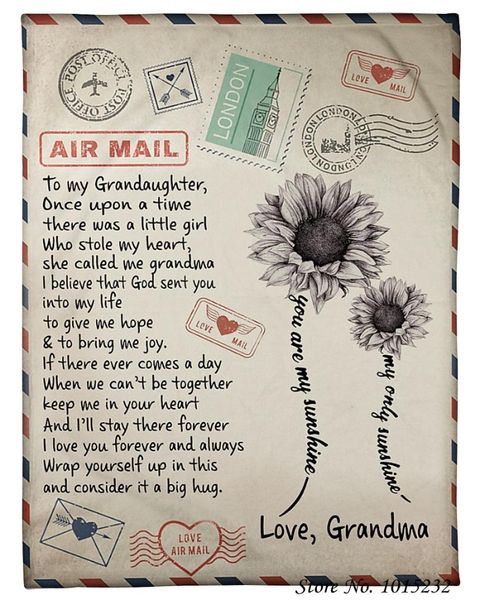 POST OFFICE
POST OFFICE
LONDON
LOVE MAIL
LONDON LONDON
AIR MAIL
To my Grandaughter,
Once upon a time
there was a little girl
Who stole my heart,
she called me grandma
I believe that God sent you
into my life
to give me hope
& to bring me joy.
If there ever comes a day
When we can't be together
keep me in your heart
And I'll stay there forever
I love you forever and always
Wrap yourself up in this
and consider it a big hug.
LOVE MAIL
you are my sunshine
my only sunshine
Love, Grandma
LOVE
AIR MAIL
Store No. 1015232